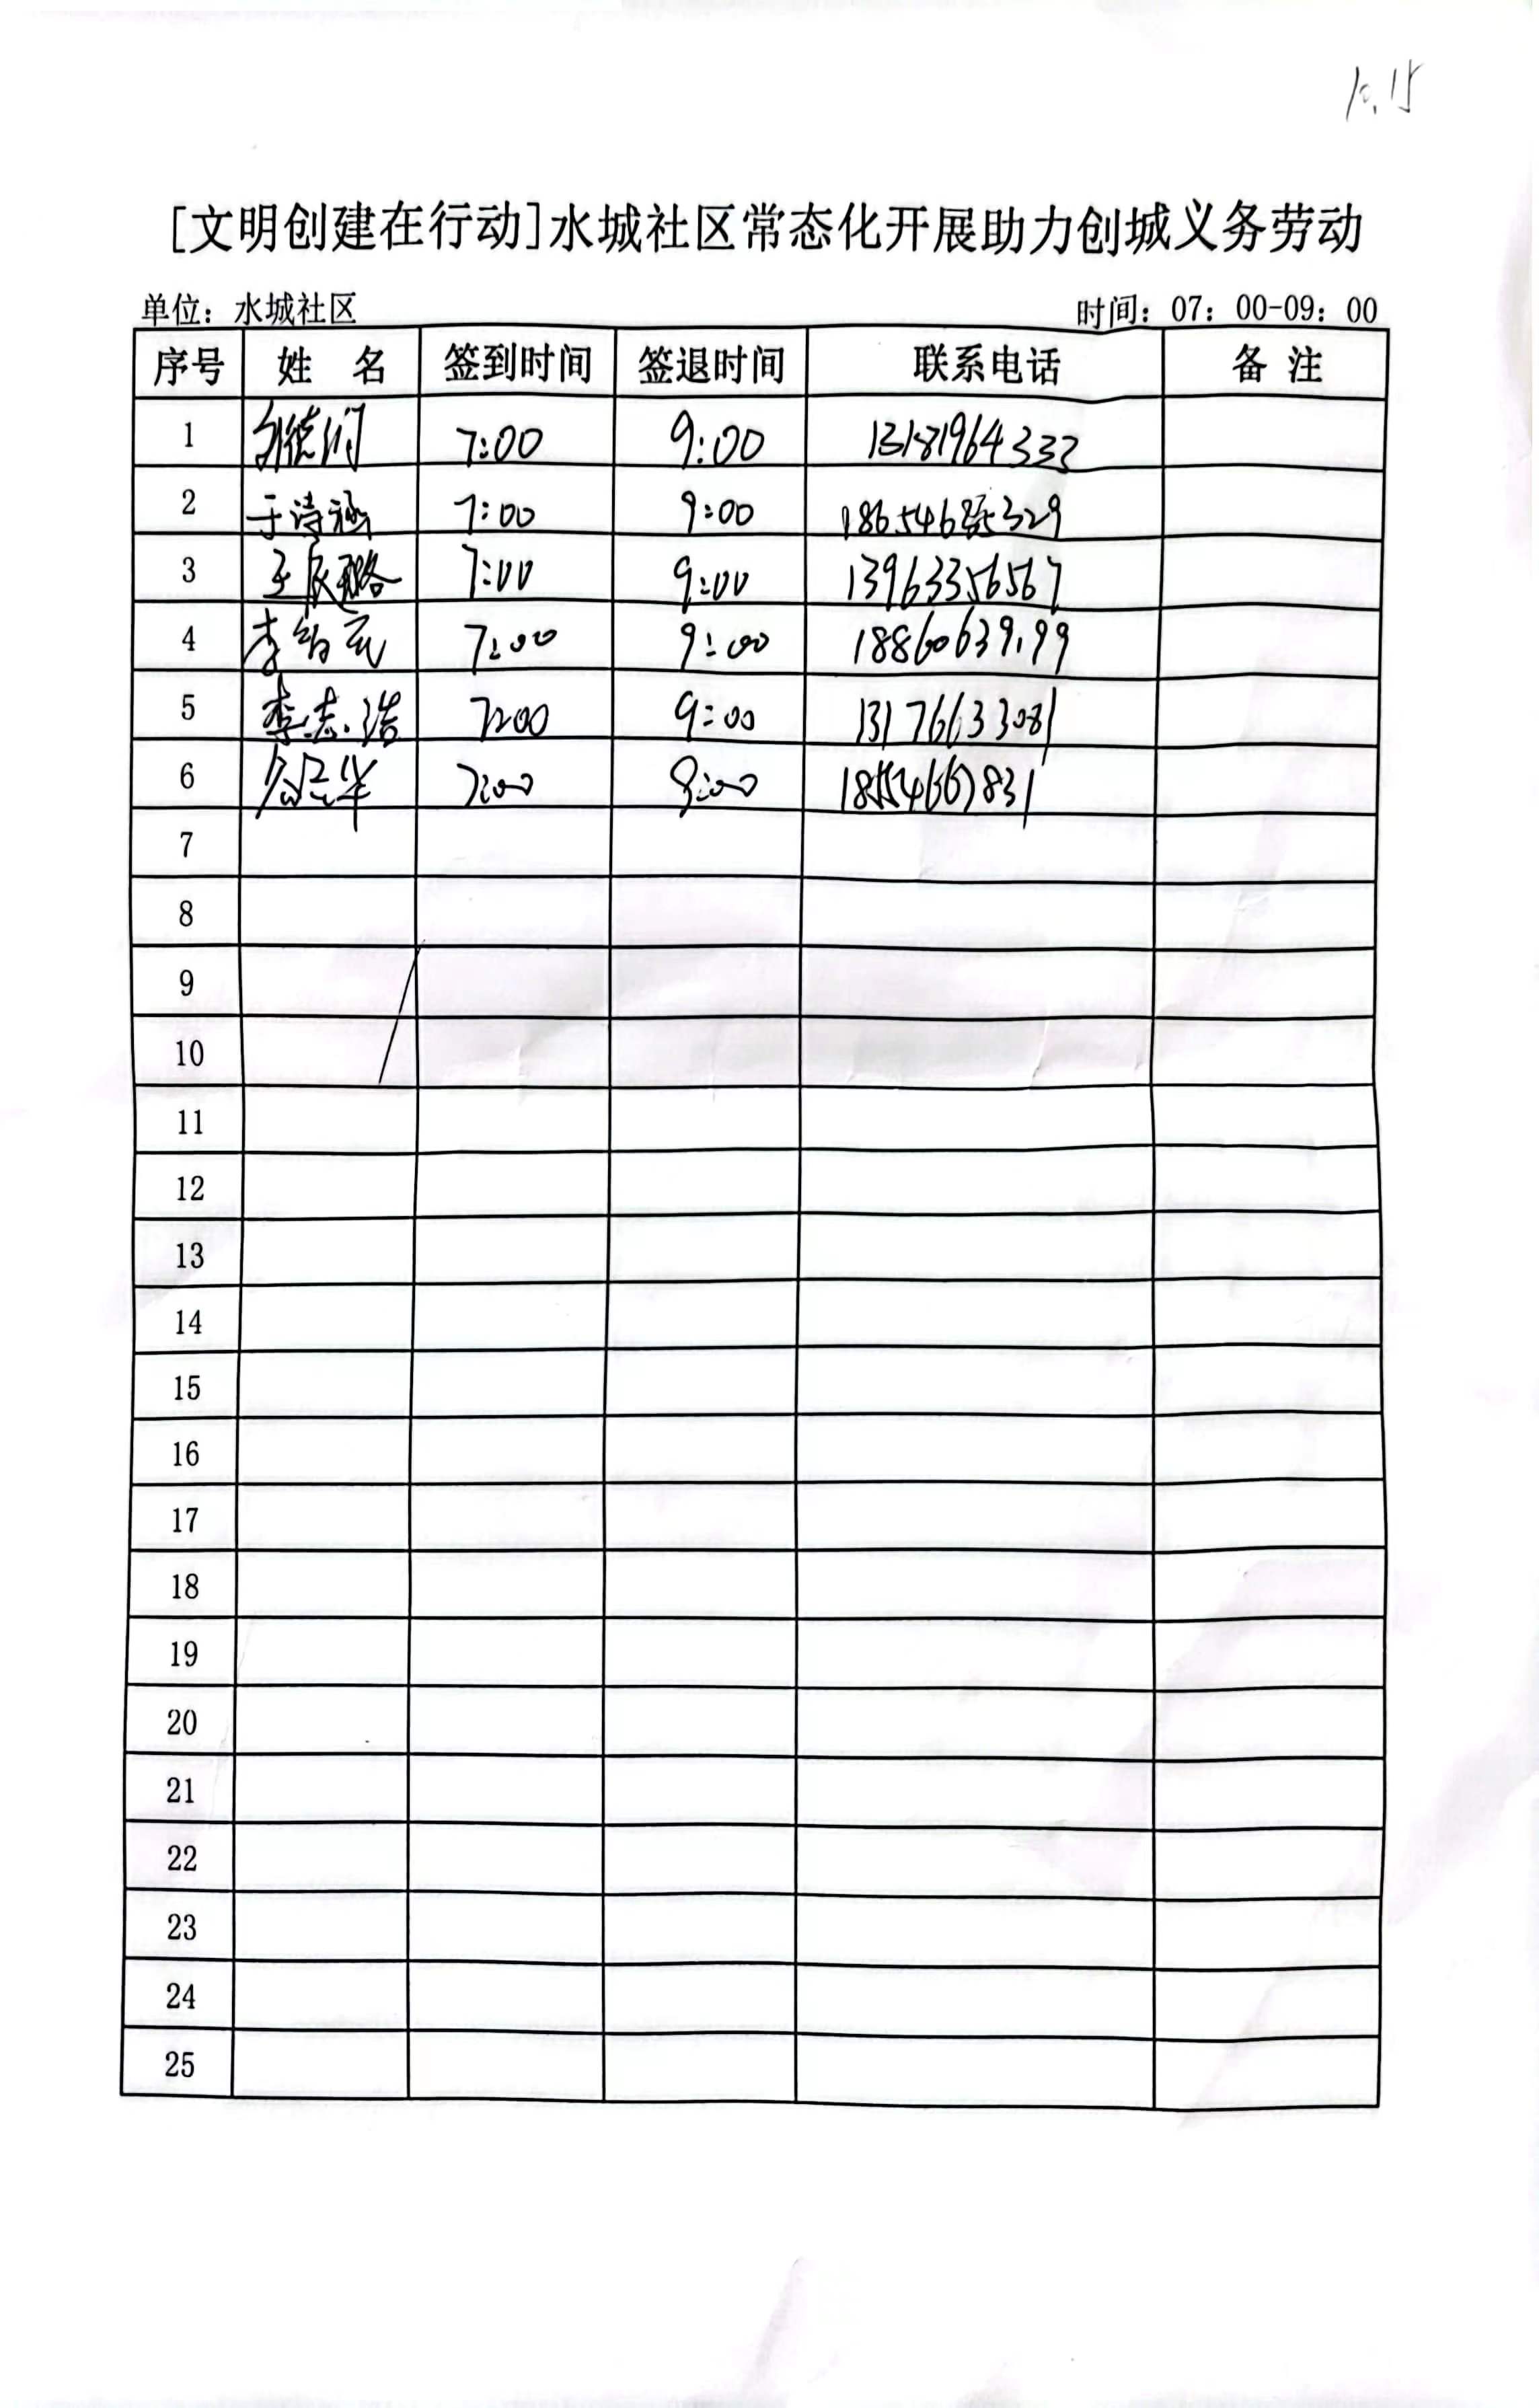 10.15
[文明创建在行动]水城社区常态化开展助力创城义务劳动
单位：水城社区 时间：07：00-09：00
序号 姓 名 签到时间 签退时间 联系电话 备 注
1 7:00 9:00 13181964333
2 于诗涵 7:00 9:00
3 7:00 9:00 13963356567
4 7:00 9:00 18860639199
5 李志浩 7:00 9:00 13176633081
6 7:00 9:00
7
8
9
10
11
12
13
14
15
16
17
18
19
20
21
22
23
24
25